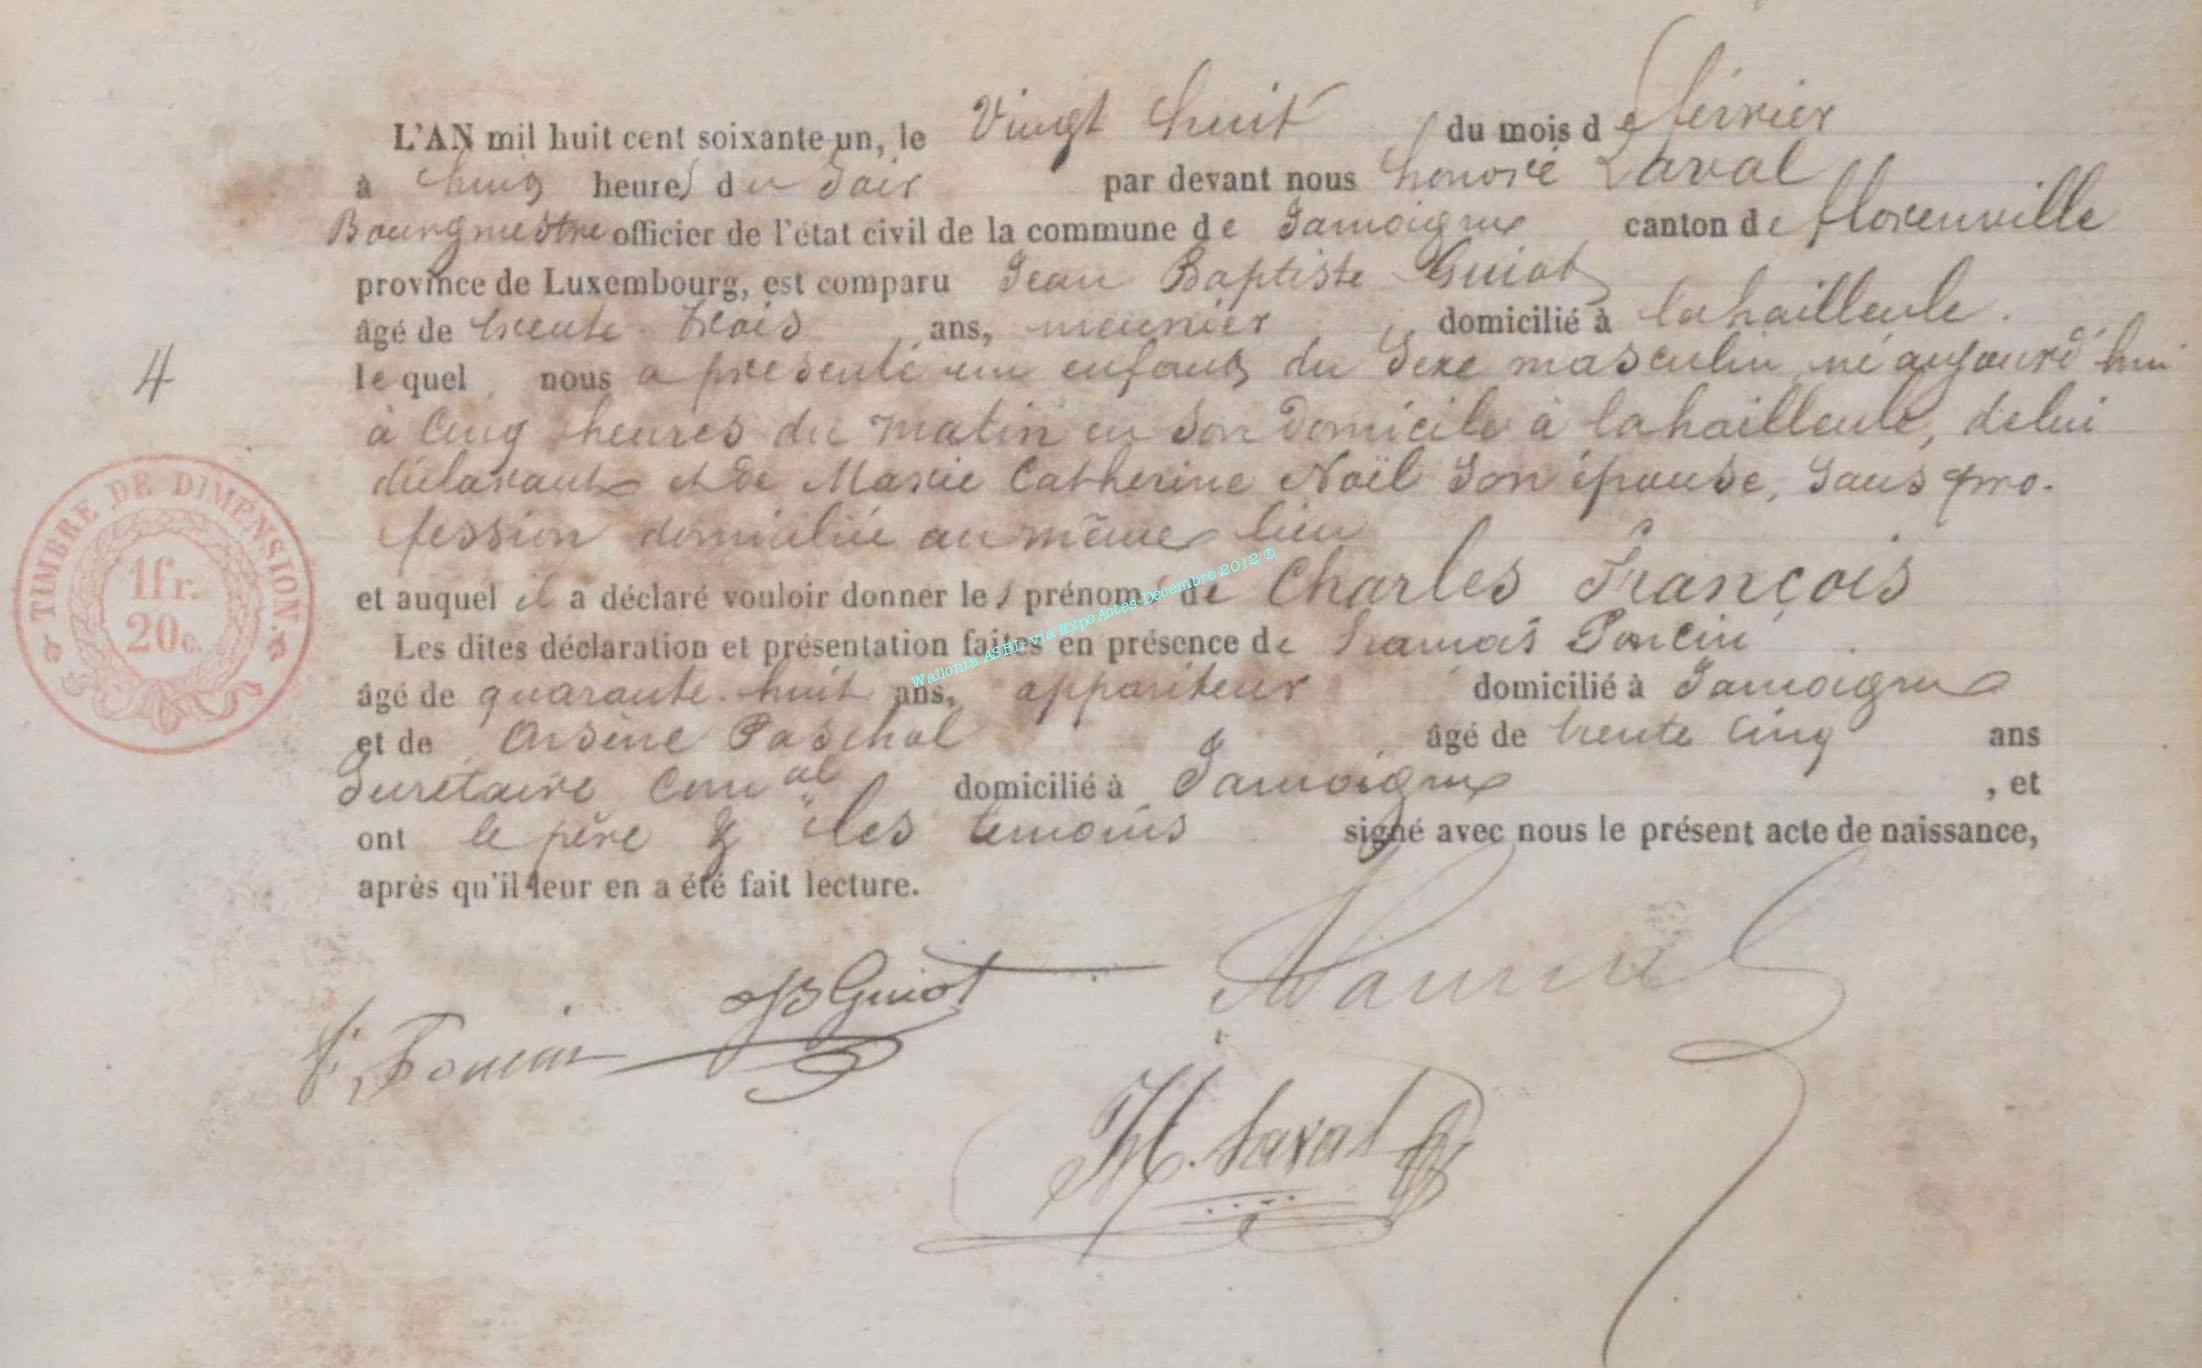 L'AN mil huit cent soixante-un, le Vingt huit du mois de février
à Cinq heures du Soir par devant nous honoré Laval
Bourgmestre officier de l'état civil de la commune de Jamoigne canton de florenville
province de Luxembourg, est comparu Jean Baptiste Guiot
âgé de trente-trois ans, meunier domicilié à lahailleule.
4
le quel nous a présenté un enfant du Sexe masculin, né aujourd'hui
à Cinq heures du matin en Son Domicile à lahailleule, de lui
déclarant et de Marie Catherine Noël Son épouse, Sans pro-
fession domiciliée au même lieu
et auquel il a déclaré vouloir donner les prénoms de Charles François
Les dites déclaration et présentation faites en présence de François Poncin
âgé de quarante-huit ans, appariteur domicilié à Jamoigne
et de Arsène Paschal âgé de trente Cinq ans
Secrétaire Comal domicilié à Jamoigne, et
ont le père & les temoins signé avec nous le présent acte de naissance,
après qu'il leur en a été fait lecture.
TIMBRE DE DIMENSION.
1fr.
20c.
Wallonia ASBL via Expo Actes-Decembre 2012 ©
JB Guiot
F. Poncin
H. Laval